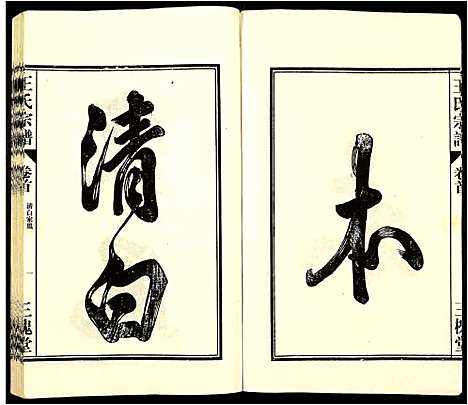 本
王氏宗譜
卷首
三槐堂
清白
王氏宗譜
卷首
清白家風
一
三槐堂